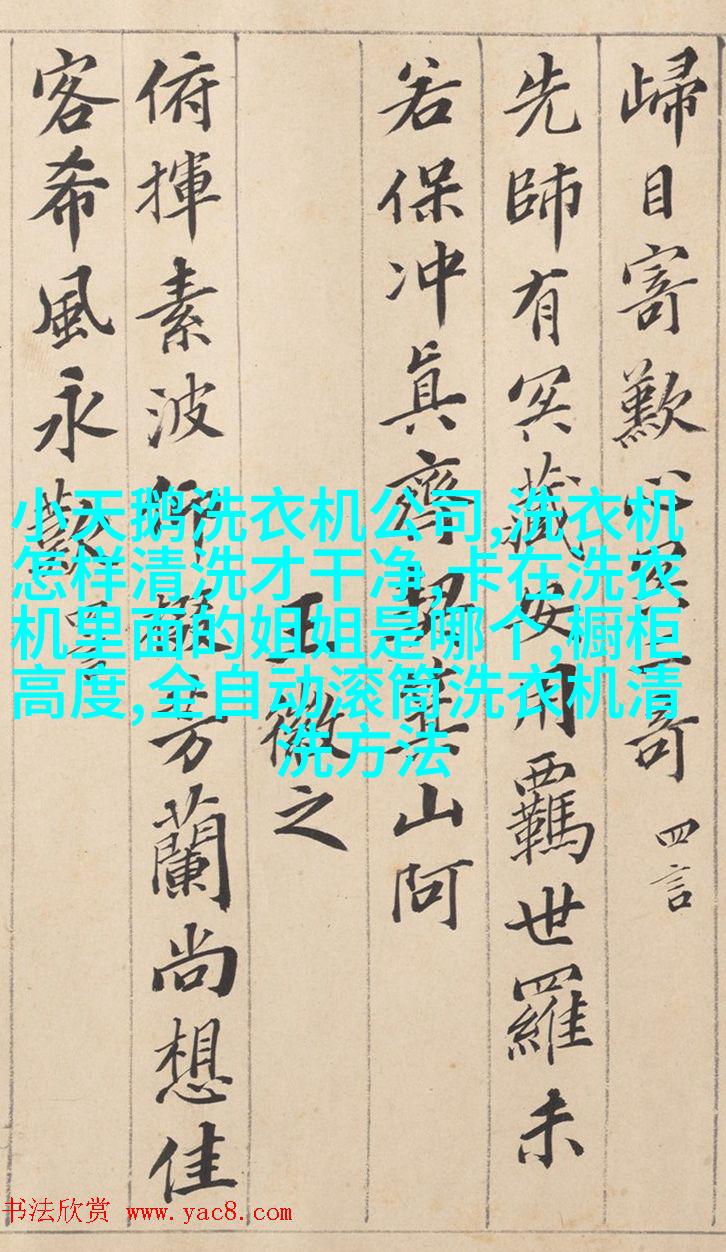 歸目寄歎心冥二奇 四言
先師有冥藏安用羈世羅未
若保冲真齊契箕山阿
王徽之
俯揮素波仰掇芳蘭尚想佳
客希風永歎
小天鹅洗衣机公司,洗衣机
怎样清洗才干净,卡在洗衣
机里面的姐姐是哪个,橱柜
高度,全自动滚筒洗衣机清
洗方法
书法欣赏 www.yac8.com